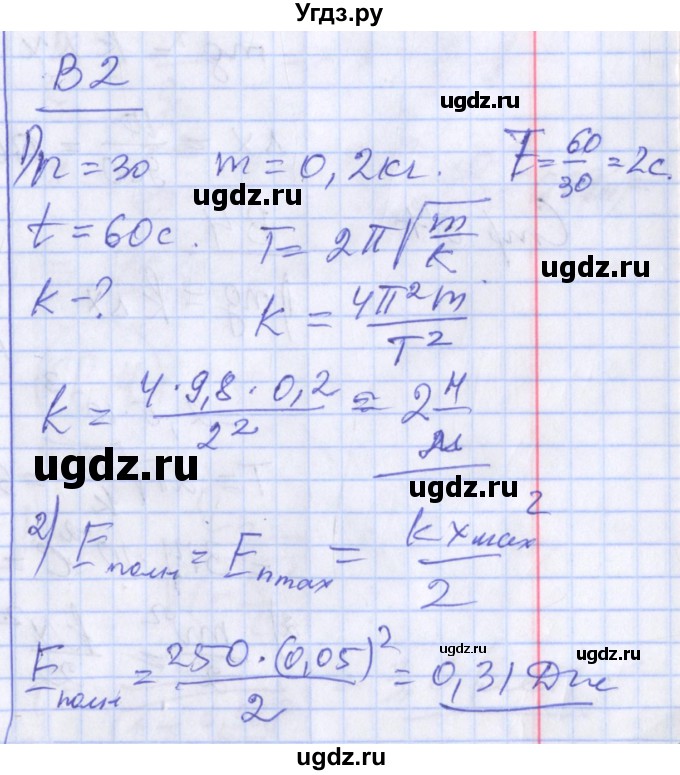 Угдз.ру
В2
ugdz.ru
1) n = 30 m = 0,2 кг. T = 60/30 = 2c.
ugdz.ru
t = 60с. T = 2π√(m/k)
ugdz.ru
k - ? k = 4π²m/T²
k = 4·9,8·0,2/2² = 2 Н/м
ugdz.ru
ugdz.ru
2) Eполн = Eп max = kxмах²/2
ugdz.ru
ugdz.ru
Eполн = 250·(0,05)²/2 = 0,31 Дж
ugdz.ru
ugdz.ru